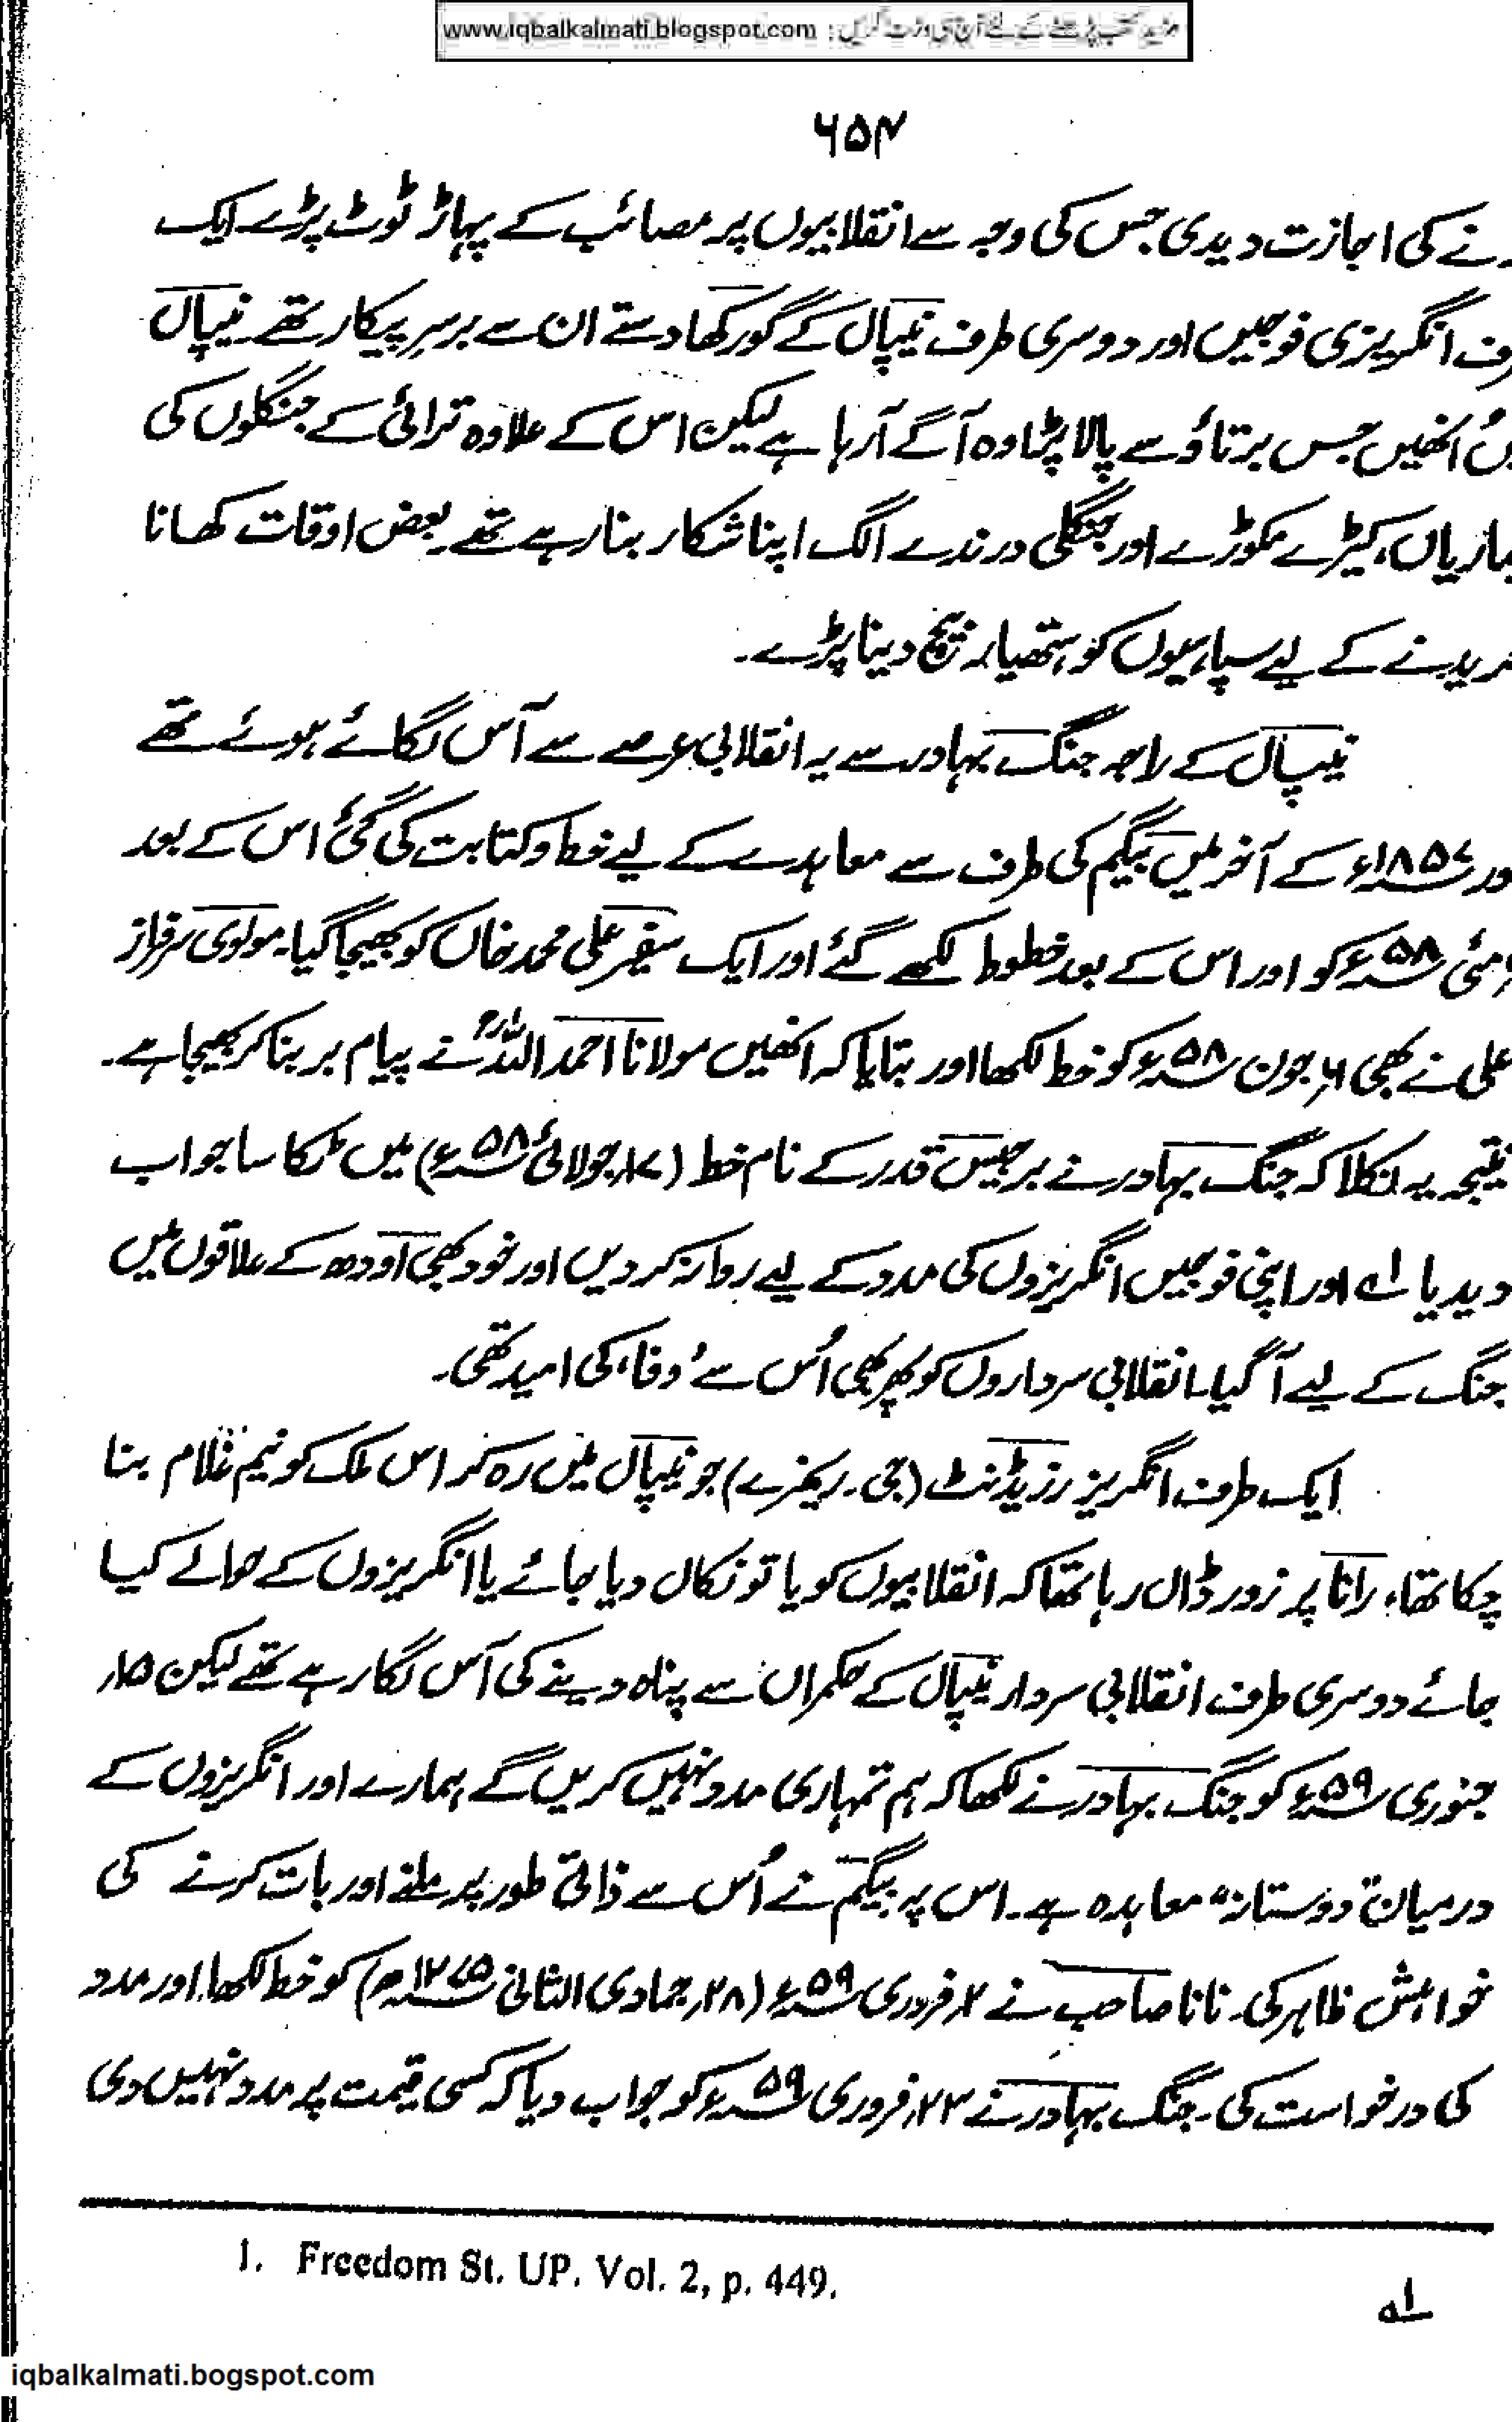 www.iqbalkalmati.blogspot.com : مزید کتب پڑھنے کے لئے آج ہی وزٹ کریں
۶۵۴
نے کی اجازت دیدی جس کی وجہ سے انقلابیوں پر مصائب کے پہاڑ ٹوٹ پڑے ایک
انگریزی فوجیں اور دوسری طرف نیپال کے گورکھا دستے ان سے برسرِ پیکار تھے۔ نیپال
انھیں جس برتاؤ سے پالا پڑا وہ آگے آرہا ہے لیکن اس کے علاوہ ترائی کے جنگلوں کی
ماریاں، کیڑے مکوڑے اور جنگلی درندے الگ اپنا شکار بنا رہے تھے۔ بعض اوقات کھانا
ریدنے کے لیے سپاہیوں کو ہتھیار بیچ دینا پڑے۔
نیپال کے راجہ جنگ بہادر سے یہ انقلابی عرصے سے آس لگائے ہوئے تھے
ور ۱۸۵۷ء کے آخر میں بیگم کی طرف سے معاہدے کے لیے خط و کتابت کی گئی اس کے بعد
مئی ۵۸ء کو اور اس کے بعد خطوط لکھے گئے اور ایک سفیر علی محمد خاں کو بھیجا گیا۔ مولوی سرفراز
علی نے بھی ۶؍ جون ۵۸ء کو خط لکھا اور بتایا کہ انھیں مولانا احمد اللہؒ نے پیام بر بنا کر بھیجا ہے۔
نتیجہ یہ نکلا کہ جنگ بہادر نے برجیس قدر کے نام خط (۱۷؍جولائی ۵۸ء) میں ٹکا سا جواب
دیدیا ؎۱ اور اپنی فوجیں انگریزوں کی مدد کے لیے روانہ کردیں اور خود بھی اودھ کے علاقوں میں
جنگ کے لیے آگیا۔ انقلابی سرداروں کو پھر بھی اُس سے 'وفا' کی امید تھی۔
ایک طرف انگریز رزیڈنٹ (جی۔ ریمزے) جو نیپال میں رہ کر اس ملک کو نیم غلام بنا
چکا تھا، رانا پر زور ڈال رہا تھا کہ انقلابیوں کو یا تو نکال دیا جائے یا انگریزوں کے حوالے کیا
جائے دوسری طرف انقلابی سردار نیپال کے حکمراں سے پناہ دینے کی آس لگا رہے تھے لیکن ۱۵؍
جنوری ۵۹ء کو جنگ بہادر نے لکھا کہ ہم تمہاری مدد نہیں کریں گے ہمارے اور انگریزوں کے
درمیان "دوستانہ" معاہدہ ہے۔ اس پر بیگم نے اُس سے ذاتی طور پر ملنے اور بات کرنے کی
خواہش ظاہر کی۔ نانا صاحب نے ۲؍فروری ۵۹ء (۲۸؍جمادی الثانی ۱۲۷۵ھ) کو خط لکھا اور مدد
کی درخواست کی۔ جنگ بہادر نے ۲۳؍فروری ۵۹ء کو جواب دیا کہ کسی قیمت پر مدد نہیں دی
1. Freedom St. UP. Vol. 2, p. 449.
؎۱
iqbalkalmati.bogspot.com